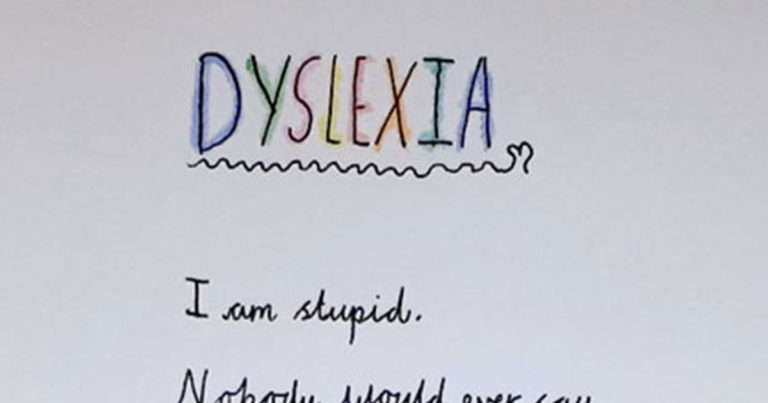 DYSLEXIA
I am stupid.
Nobody would ever say